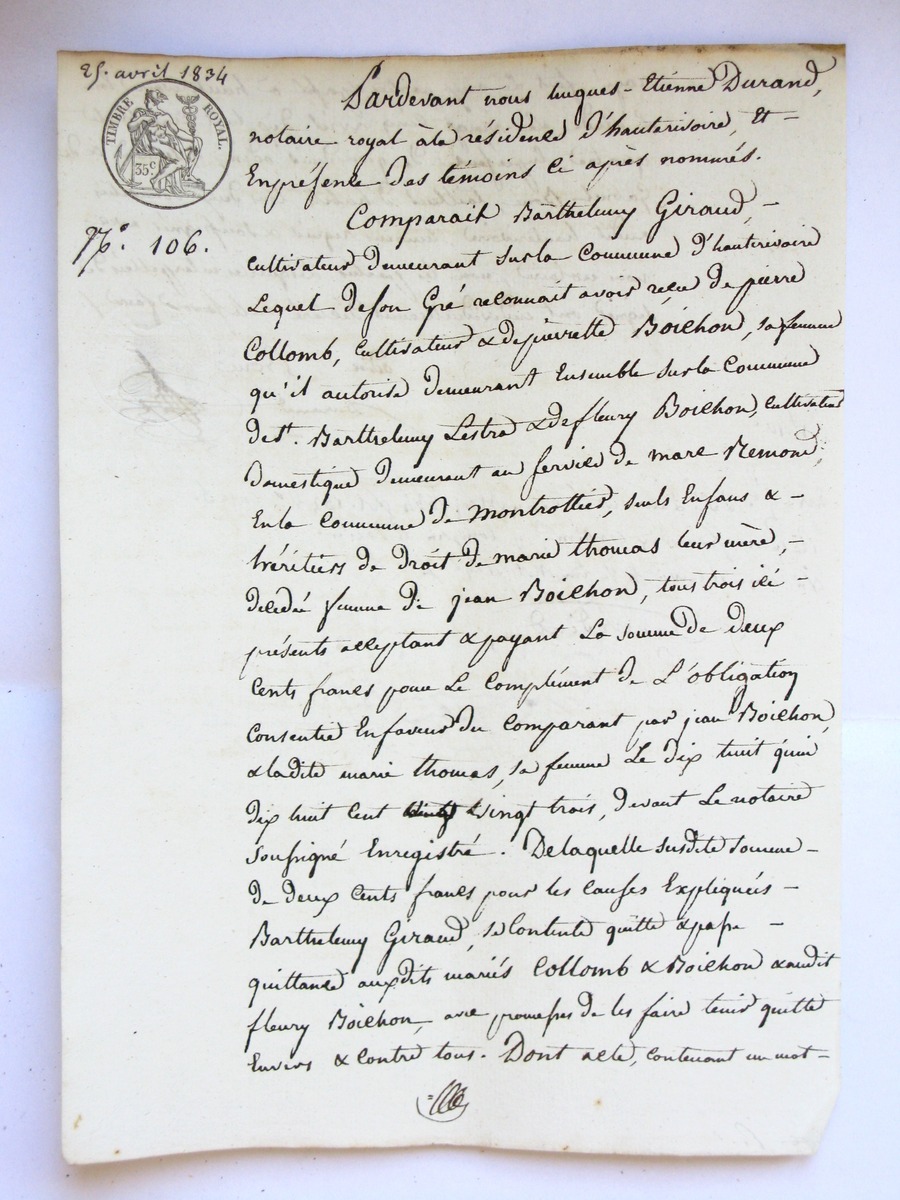 25. avril 1834
TIMBRE ROYAL.
35 C
N°. 106.
Pardevant nous hugues - Etienne Durand,
notaire royal à la résidence d'hauterivoire, Et -
En présence des témoins Ci après nommés.
Comparait Barthelemy Giraud, -
cultivateur demeurant sur la Commune d'hauterivoire
Lequel de son Gré reconnait avoir reçu de pierre
Collomb, cultivateur & de pierrette Boichon, sa femme
qu'il autorise demeurant Ensemble sur la Commune
de st. Barthelemy Lestra & de fleury Boichon, cultivateur
domestique demeurant au service de marc Remond,
En la Commune de Montrottier, seuls Enfans & -
héritiers de droit de marie thomas leur mère, -
décédée femme de jean Boichon, tous trois ici -
présents acceptant & payant La somme de deux
Cents francs pour Le Complément de L'obligation
Consentie En faveur du Comparant par jean Boichon,
& ladite marie thomas, sa femme Le dix huit juin
dix huit cent vingt trois, devant Le notaire
soussigné Enregistré. De laquelle susdite somme -
de deux Cents francs pour les causes Expliquées -
Barthelemy Giraud, se Contente quitte & passe -
quittance aux dits mariés Collomb & Boichon & audit
fleury Boichon, avec promesses de les faire tenir quitte
Envers & Contre tous. Dont acte, contenant un mot -